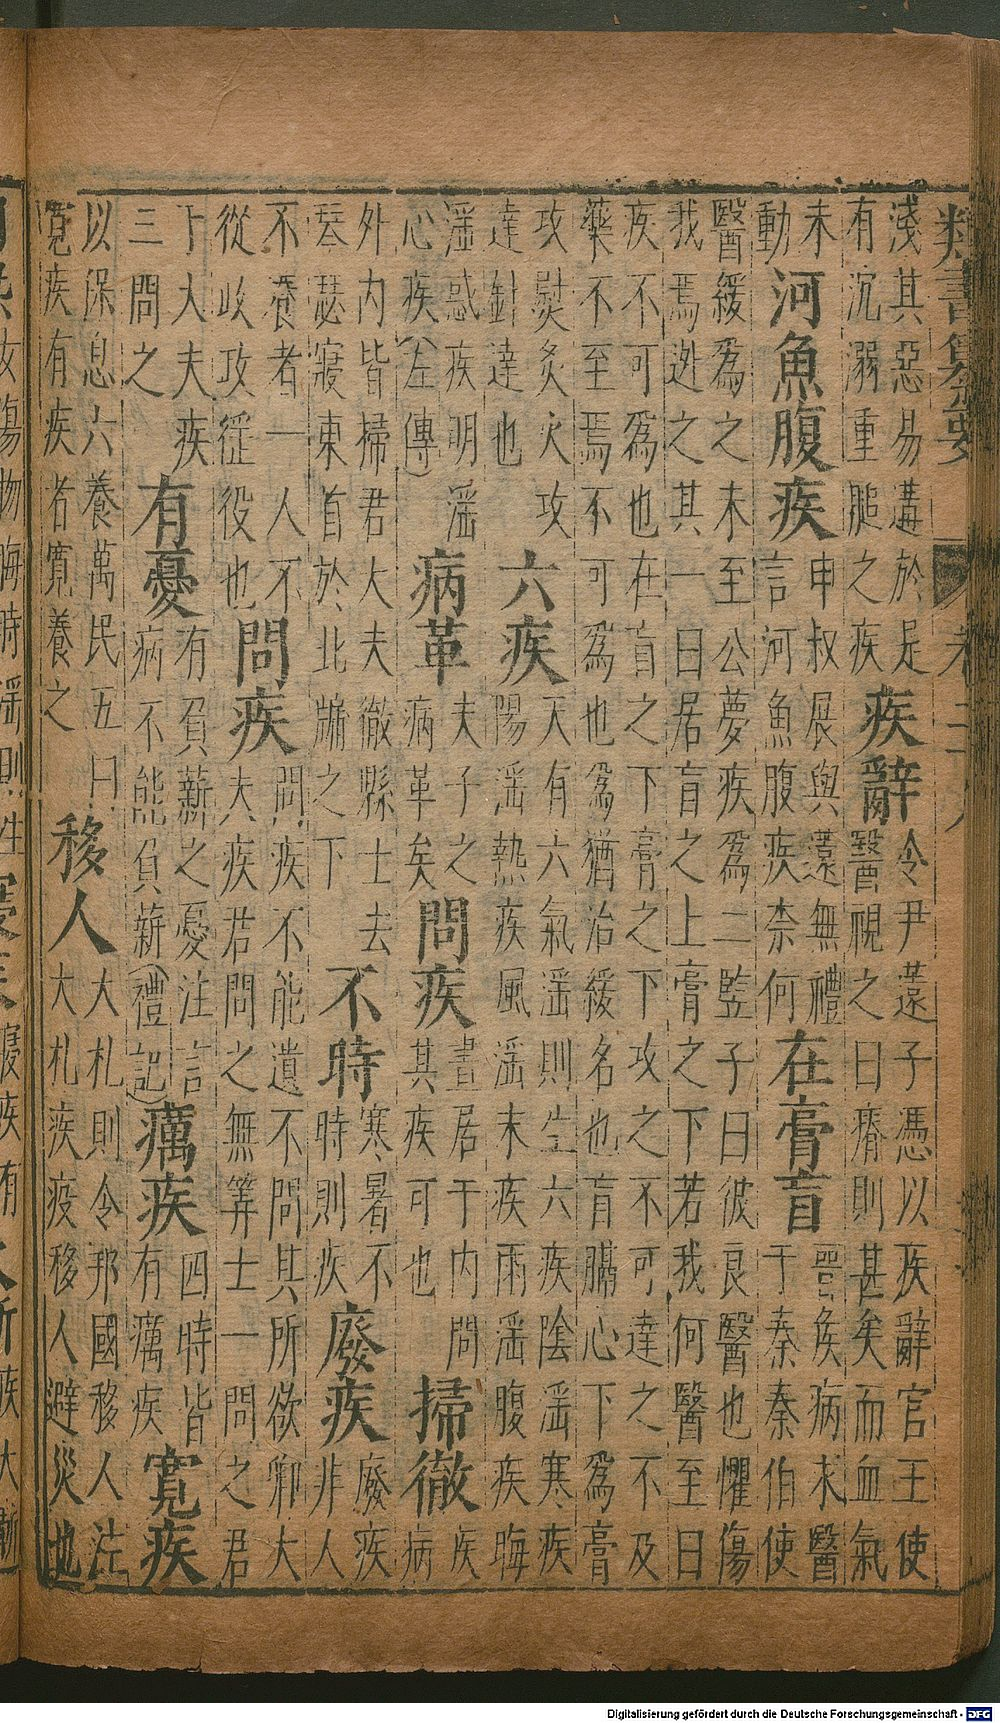 類書纂要
淺其惡易遘於是
有沉溺重膇之疾
疾辭
令尹薳子憑以疾辭官王使
醫視之曰瘠則甚矣而血氣
未
動
河魚腹疾
申叔展與薳無禮
言河魚腹疾柰何
在膏肓
晉矦病求醫
于秦秦伯使
醫緩爲之未至公夢疾爲二豎子曰彼良醫也懼傷
我焉逃之其一曰居肓之上膏之下若我何醫至曰
疾不可爲也在肓之下膏之下攻之不可達之不及
藥不至焉不可爲也爲猶治緩名也肓膈心下爲膏
攻熨灸火攻
達針達也
六疾
天有六氣滛則生六疾陰滛寒疾
陽滛熱疾風滛末疾雨滛腹疾晦
滛惑疾明滛
心疾(左傳)
病革
夫子之
病革矣
問疾
晝居于内問
其疾可也
掃徹
疾
病
外内皆掃君大夫徹縣士去
琴瑟寢東首於北牖之下
不時
寒暑不
時則疾
廢疾
廢疾
非人
不養者一人不
從政攻從役也
問疾
問疾不能遺不問其所欲卿大
夫疾君問之無筭士一問之君
下大夫疾
三問之
有憂
有負薪之憂注言
病不能負薪(禮記)
癘疾
四時皆
有癘疾
寬疾
以保息六養萬民五曰
寬疾有疾者寬養之
移人
大札則令邦國移人注
大札疾疫移人避災也
Digitalisierung gefördert durch die Deutsche Forschungsgemeinschaft - DFG